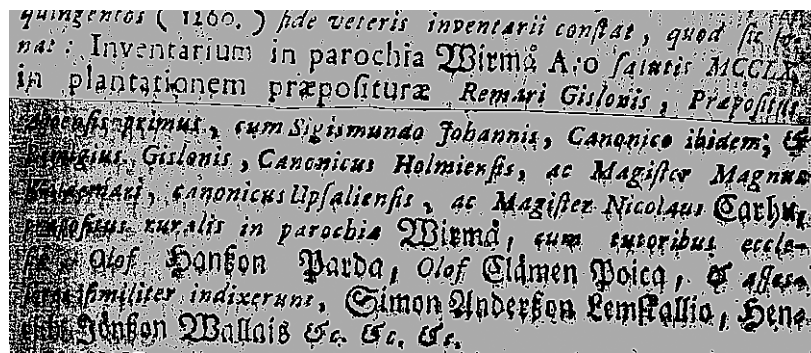 quingentos (1260.) fide veteris inventarii constat, quod sic
nat: Inventarium in parochia Wirmå A:o salutis MCCLX.
in plantationem præpositurae Remari Gislonis, Præpositus
primus, cum Sigismundo Johannis, Canonico ibidem; &
Gislonis, Canonicus Holmiensis, ac Magister Magnus
canonicus Upsaliensis, ac Magister Nicolaus Carhu,
præpositus ruralis in parochia Wirmå, cum tutoribus eccle-
Olof Hanßon Parda, Olof Clåmen Poica, &
indixerunt, Simon Anderßon Lemskallio, Hen-
Jönßon Wallais &c. &c. &c.